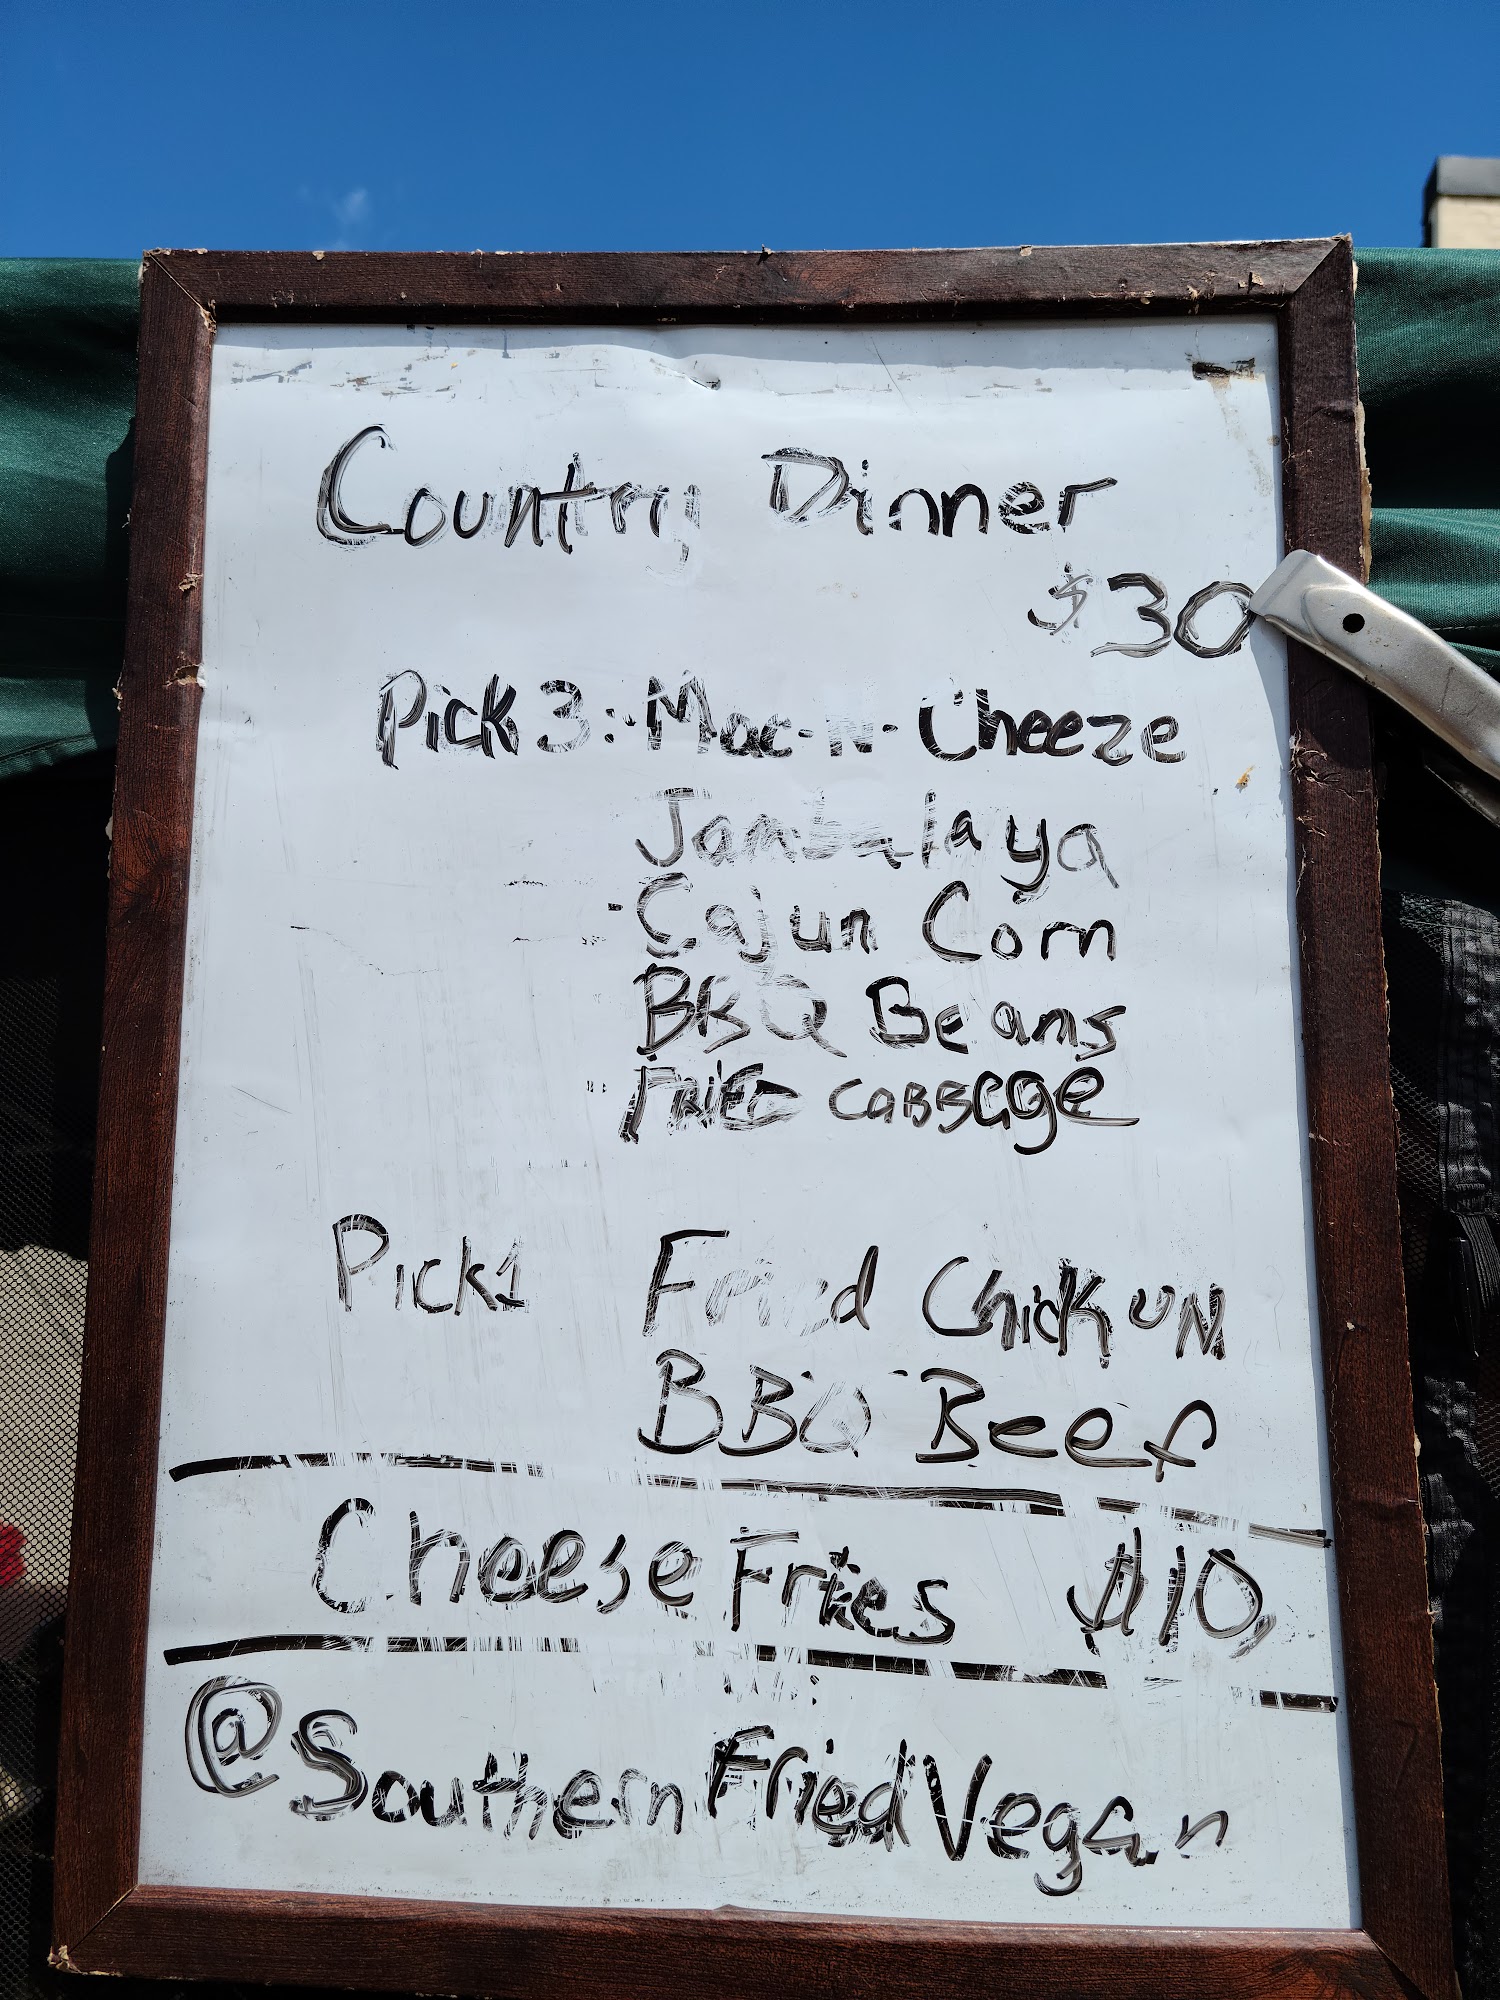 Country Dinner
$30
Pick 3: Mac-N-Cheeze
Jambalaya
Cajun Corn
BBQ Beans
FRIED CABBage
Pick 1 Fried ChickUN
BBQ Beef
Cheese Fries $10
@SouthernFriedVegan